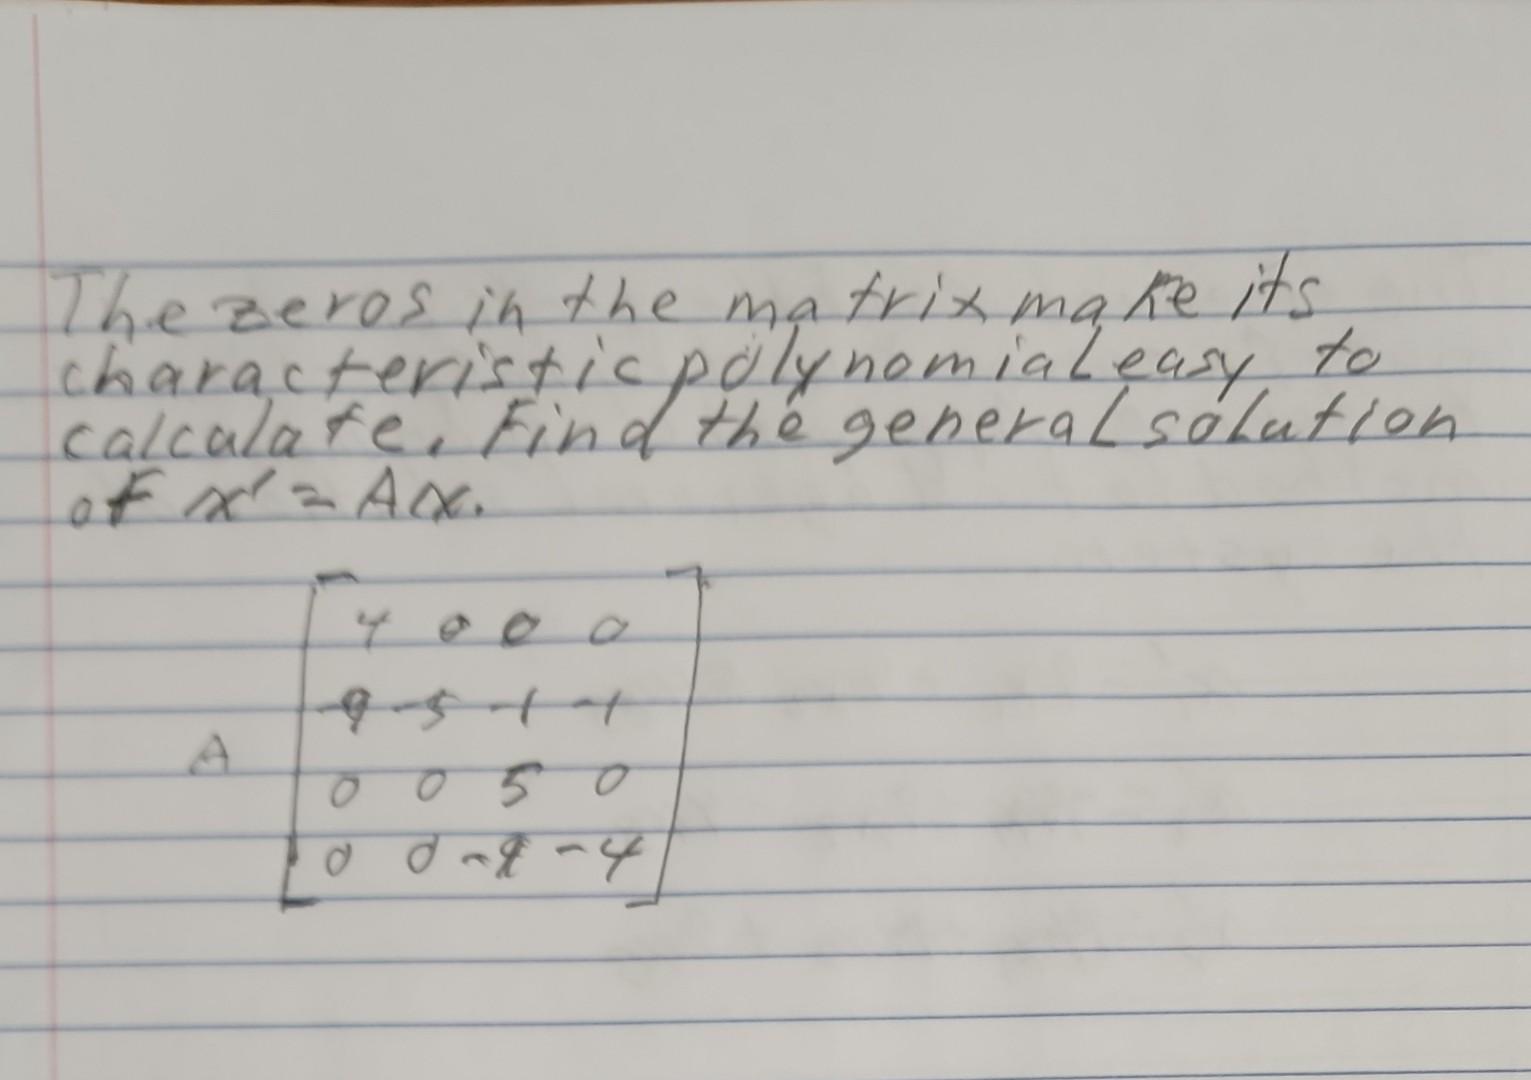 The zeros in the matrix make its
characteristic polynomial easy to
calculate. Find the general solution
of x' = Ax.
4 0 0 0
-9 -5 -1 -1
A
0 0 5 0
0 0 -4